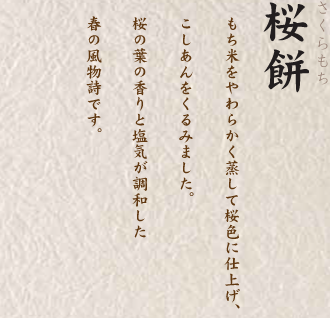 さくらもち
桜餅
もち米をやわらかく蒸して桜色に仕上げ、
こしあんをくるみました。
桜の葉の香りと塩気が調和した
春の風物詩です。